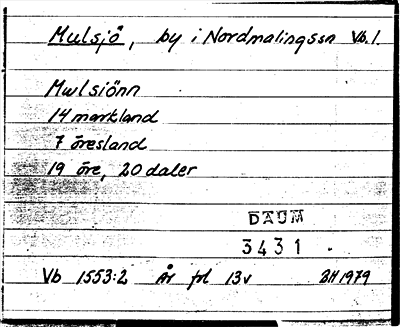 Mulsjö, by i Nordmalingssn Vb.l.
Mwlsiönn
14 markland
7 öresland
19 öre, 20 daler
DAUM
3431
Vb 1553:2 År fol 13v BH 1979